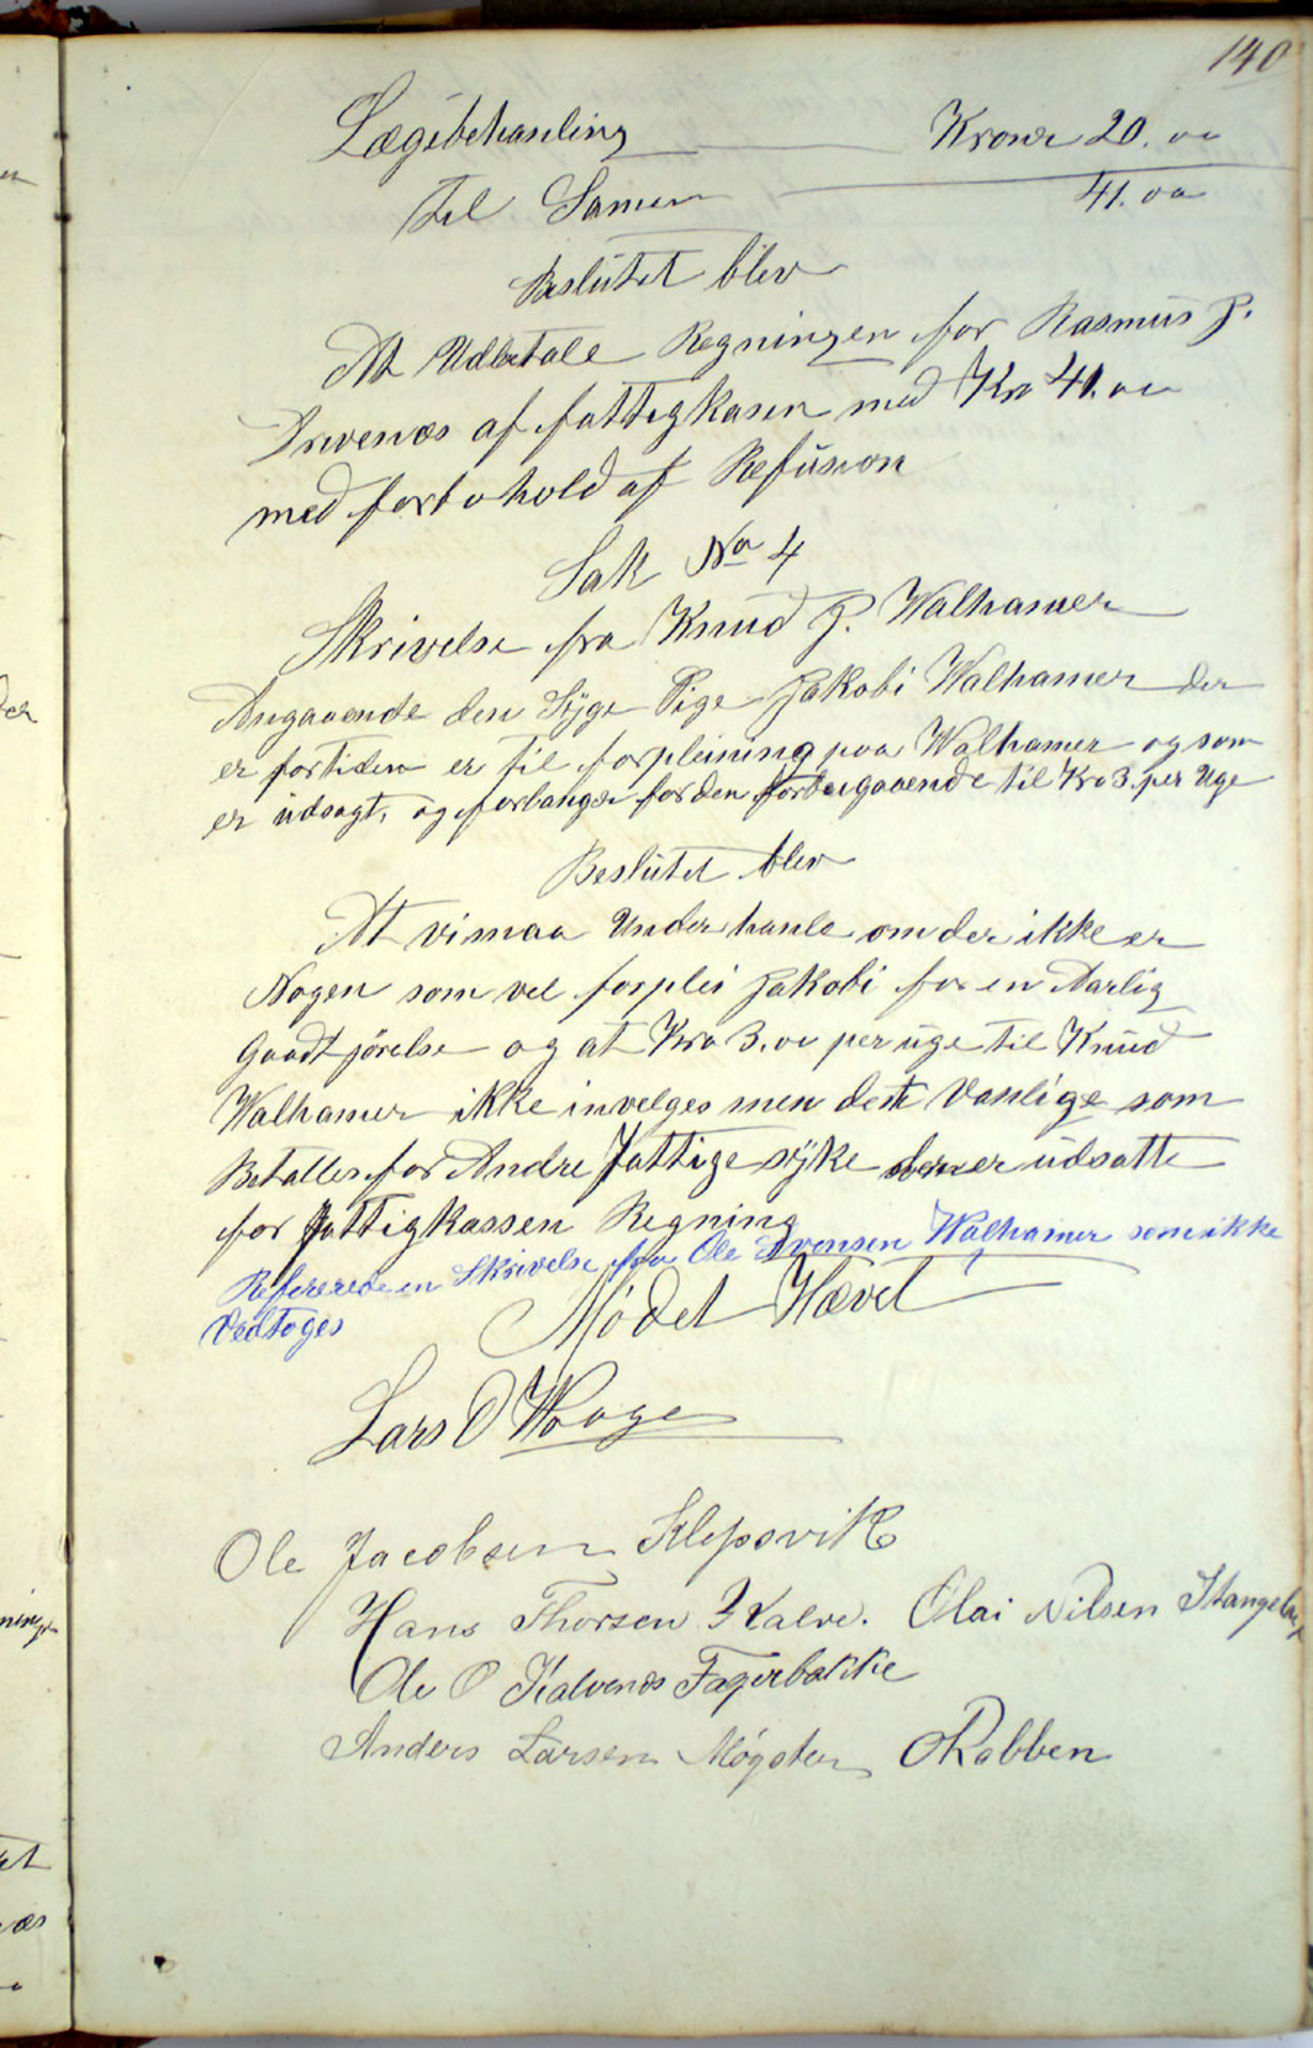 140
Lægebehanling Kroner 20.oo
til Samen 41.oo
Beslutet blev
At Udbetale Regningen for Rasmus J.
Drivenæs af fattigkasen med Kro 41.oo
med forbohold af Refusion
Sak No 4
Skrivelse fra Knud J. Walhamer
Angaaende den Syge Pige Jakobi Walhamer der
er fortiden er til forpleining paa Walhamer og som
er udsagt, og forlanger for den forbigaaende til Kro 3. per Uge
Beslutet blev
At vi maa Underhanle om der ikke er
Nogen som vel forplei Jakobi for en Aarlig
Gaadtjørelse og at Kro 3.oo per uge til Knud
Walhamer ikke invelges men dett Vanlige som
Betalles for Andre Fattige syke som er udsatte
for Fattigkassen Regning
Refererede en Skrivelse fra Ole Svensen Walhamer som ikke
Vedtoges
Mødet Hævet
Lars O Waage
Ole Jacobsen Klepsvik
Hans Thorsen Kalve. Olai Nilsen Stangeland
Ole O Kalvenes Fagerbakke
Anders Larsen Møgster ORabben